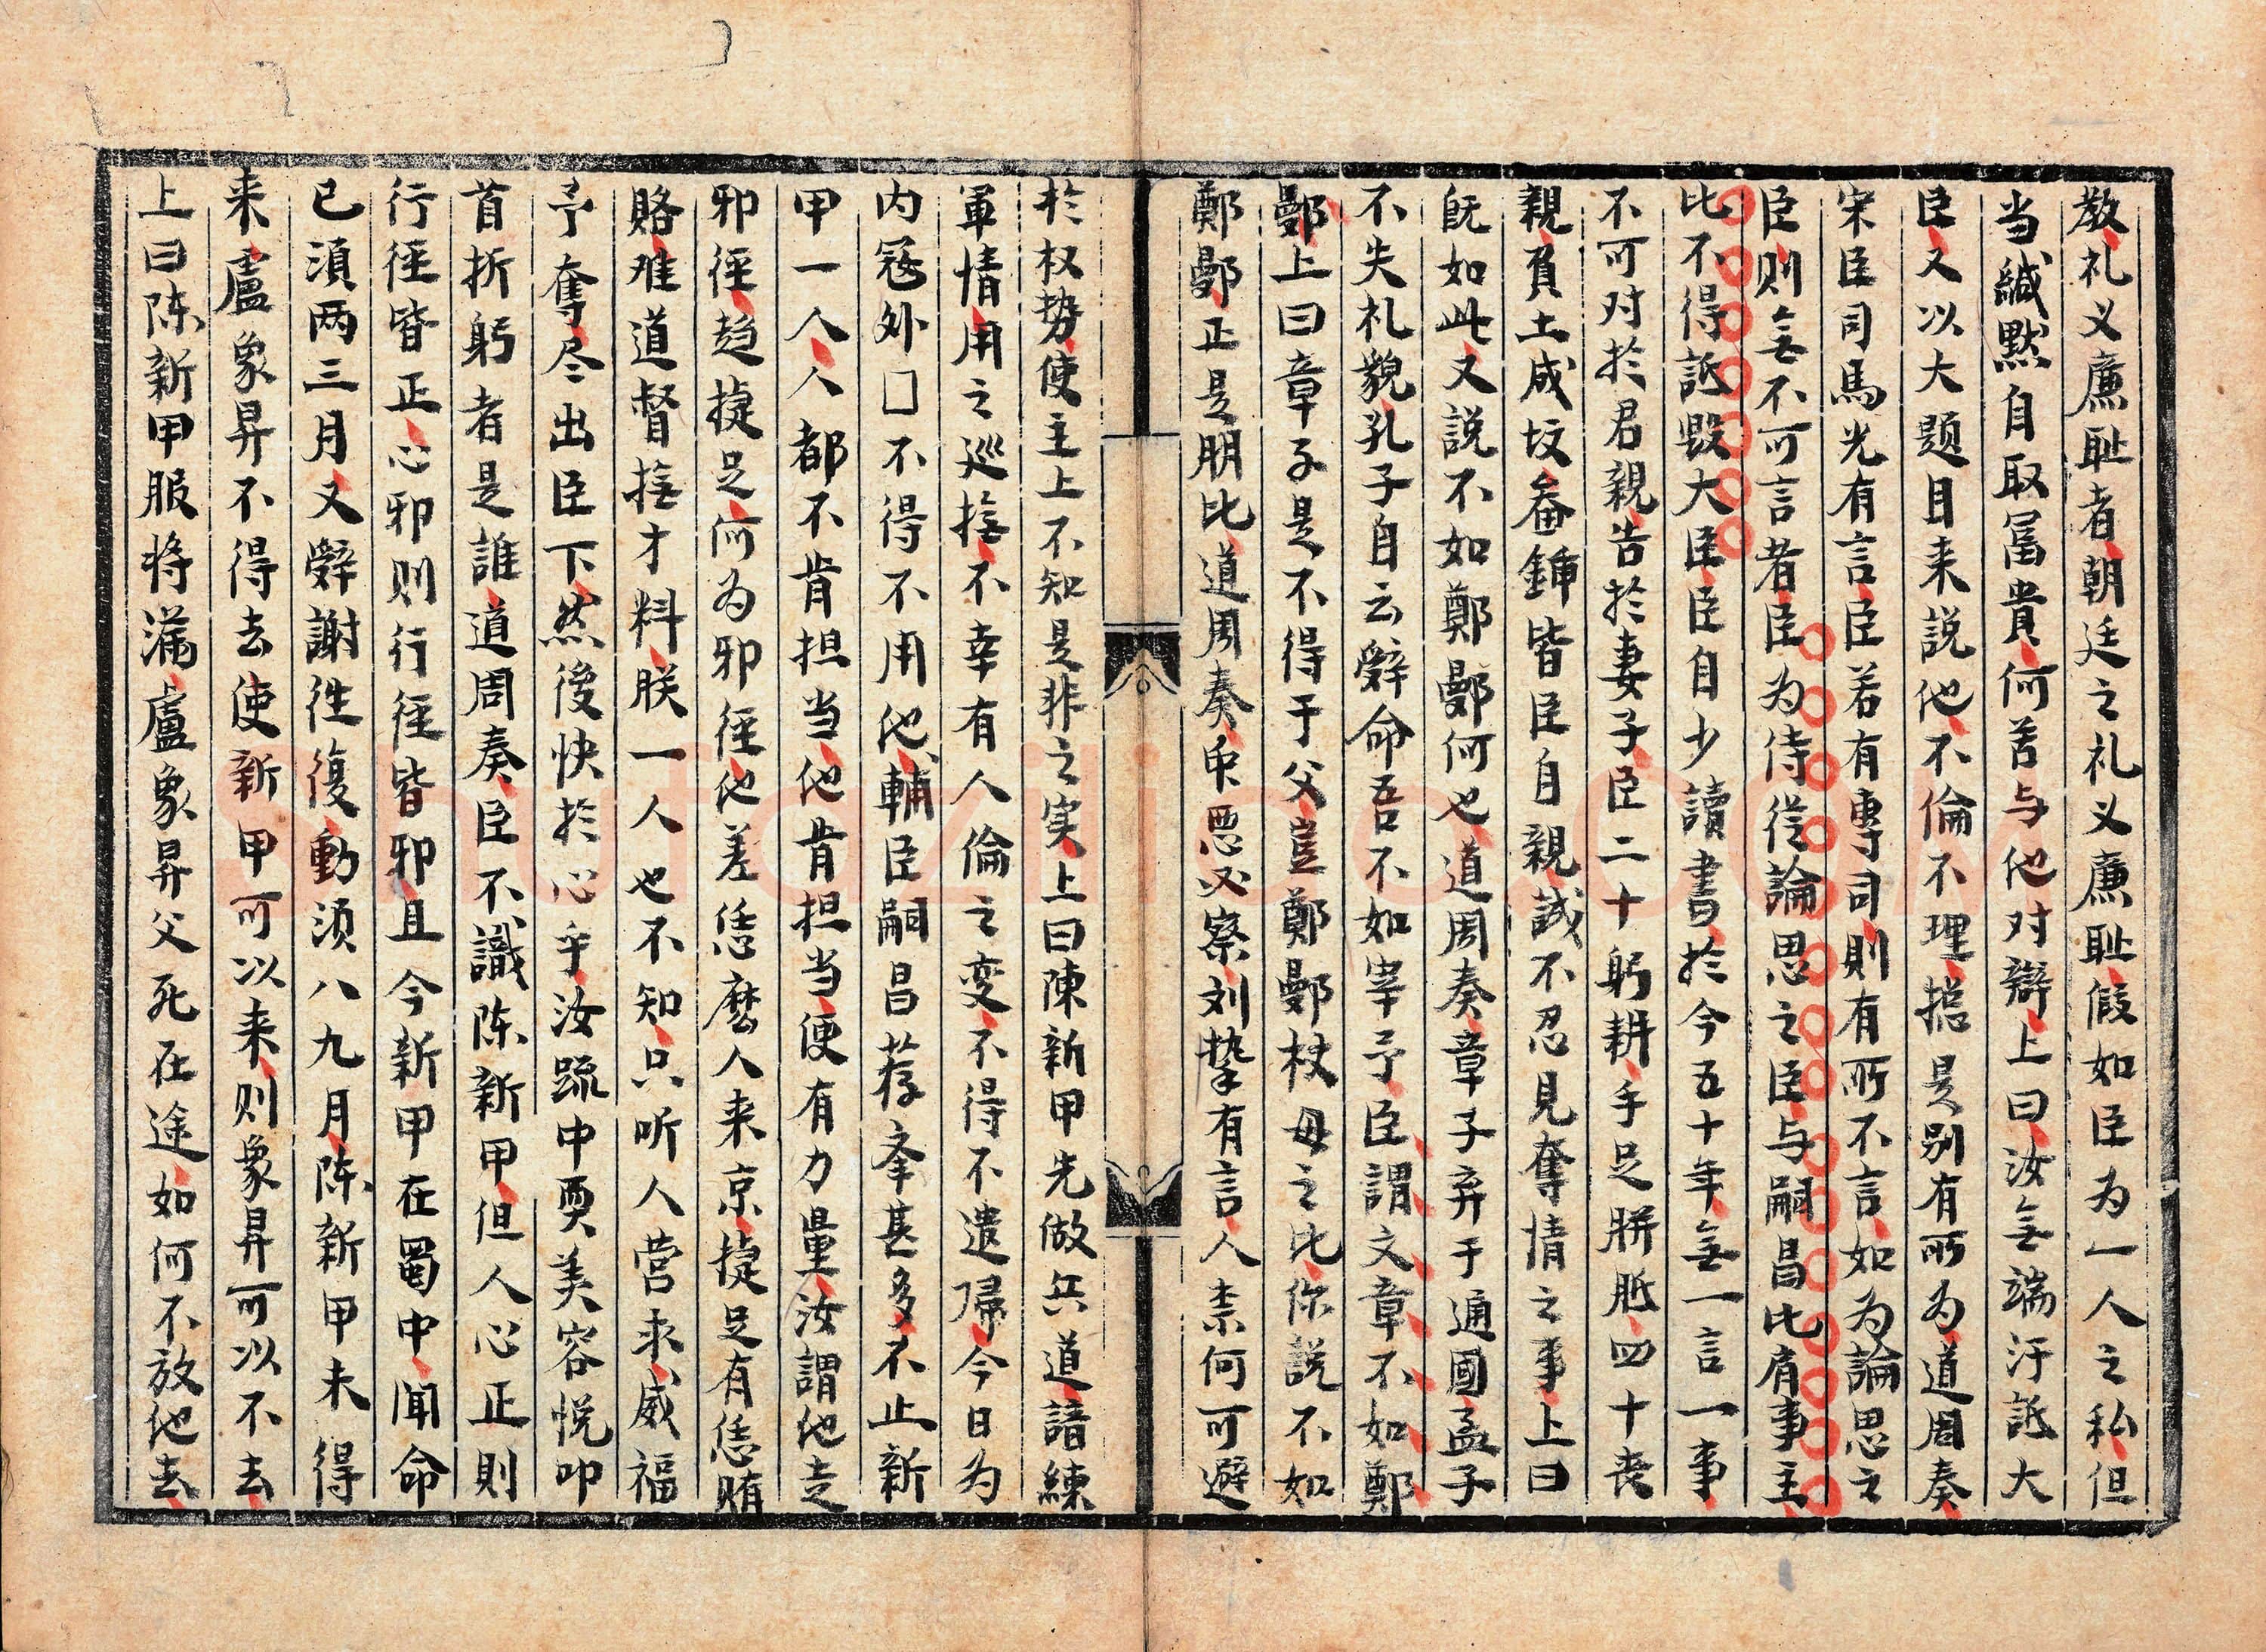 教礼义廉耻者朝廷之礼义廉耻假如臣为一人之私但
当缄默自取富貴何苦与他对辯上曰汝無端汙詆大
臣又以大题目来説他不倫不理揔是别有所为道周奏
宋臣司馬光有言臣若有專司則有所不言如为論思之
臣则無不可言者臣为侍従論思之臣与嗣昌比肩事主
比不得詆毀大臣臣自少讀書於今五十年無一言一事
不可对於君親告於妻子臣二十躬耕手足胼胝四十丧
親負土成坟畚鍤皆臣自親誠不忍見奪情之事上曰
既如此又説不如鄭鄤何也道周奏章子弃于通國孟子
不失礼貌孔子自云辭命吾不如宰予臣謂文章不如鄭
鄤上曰章子是不得于父豈鄭鄤杖母之比你説不如
鄭鄤正是朋比道周奏衆恶必察刘摯有言人柰何可避
於权势使主上不知是非之実上曰陳新甲先做兵道諳練
軍情用之巡撫不幸有人倫之变不得不遣歸今日为
内寇外□不得不用他輔臣嗣昌荐举甚多不止新
甲一人人都不肯担当他肯担当便有力量汝謂他走
邪徑趋捷足何为邪徑他差恁麽人来京捷足有恁賄
賂难道督撫才料朕一人也不知只听人营求威福
予奪尽出臣下然後快於心乎汝疏中耎美容悦叩
首折躬者是誰道周奏臣不識陈新甲但人心正則
行徑皆正心邪则行徑皆邪且今新甲在蜀中聞命
已須两三月又辭謝往復動须八九月陈新甲未得
来盧象昇不得去使新甲可以来则象昇可以不去
上曰陈新甲服将满盧象昇父死在途如何不放他去